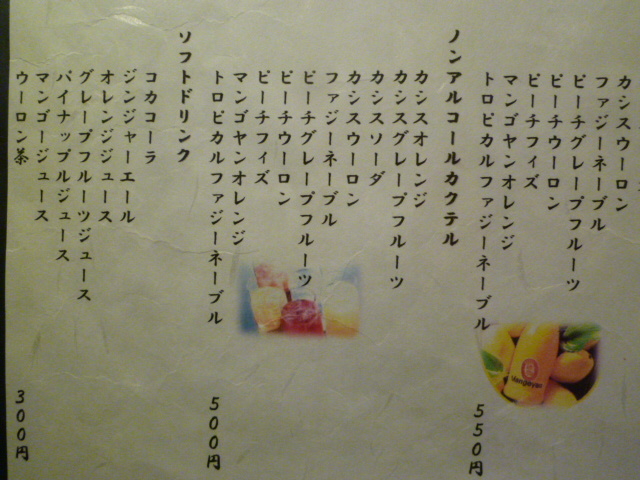 カシスウーロン
ファジーネーブル
ピーチグレープフルーツ
ピーチウーロン
ピーチフィズ
マンゴヤンオレンジ
トロピカルファジーネーブル
550円
Mangoyan
ノンアルコールカクテル
カシスオレンジ
カシスグレープフルーツ
カシスソーダ
カシスウーロン
ファジーネーブル
ピーチグレープフルーツ
ピーチウーロン
ピーチフィズ
マンゴヤンオレンジ
トロピカルファジーネーブル
500円
ソフトドリンク
コカコーラ
ジンジャーエール
オレンジジュース
グレープフルーツジュース
パイナップルジュース
マンゴージュース
ウーロン茶
300円